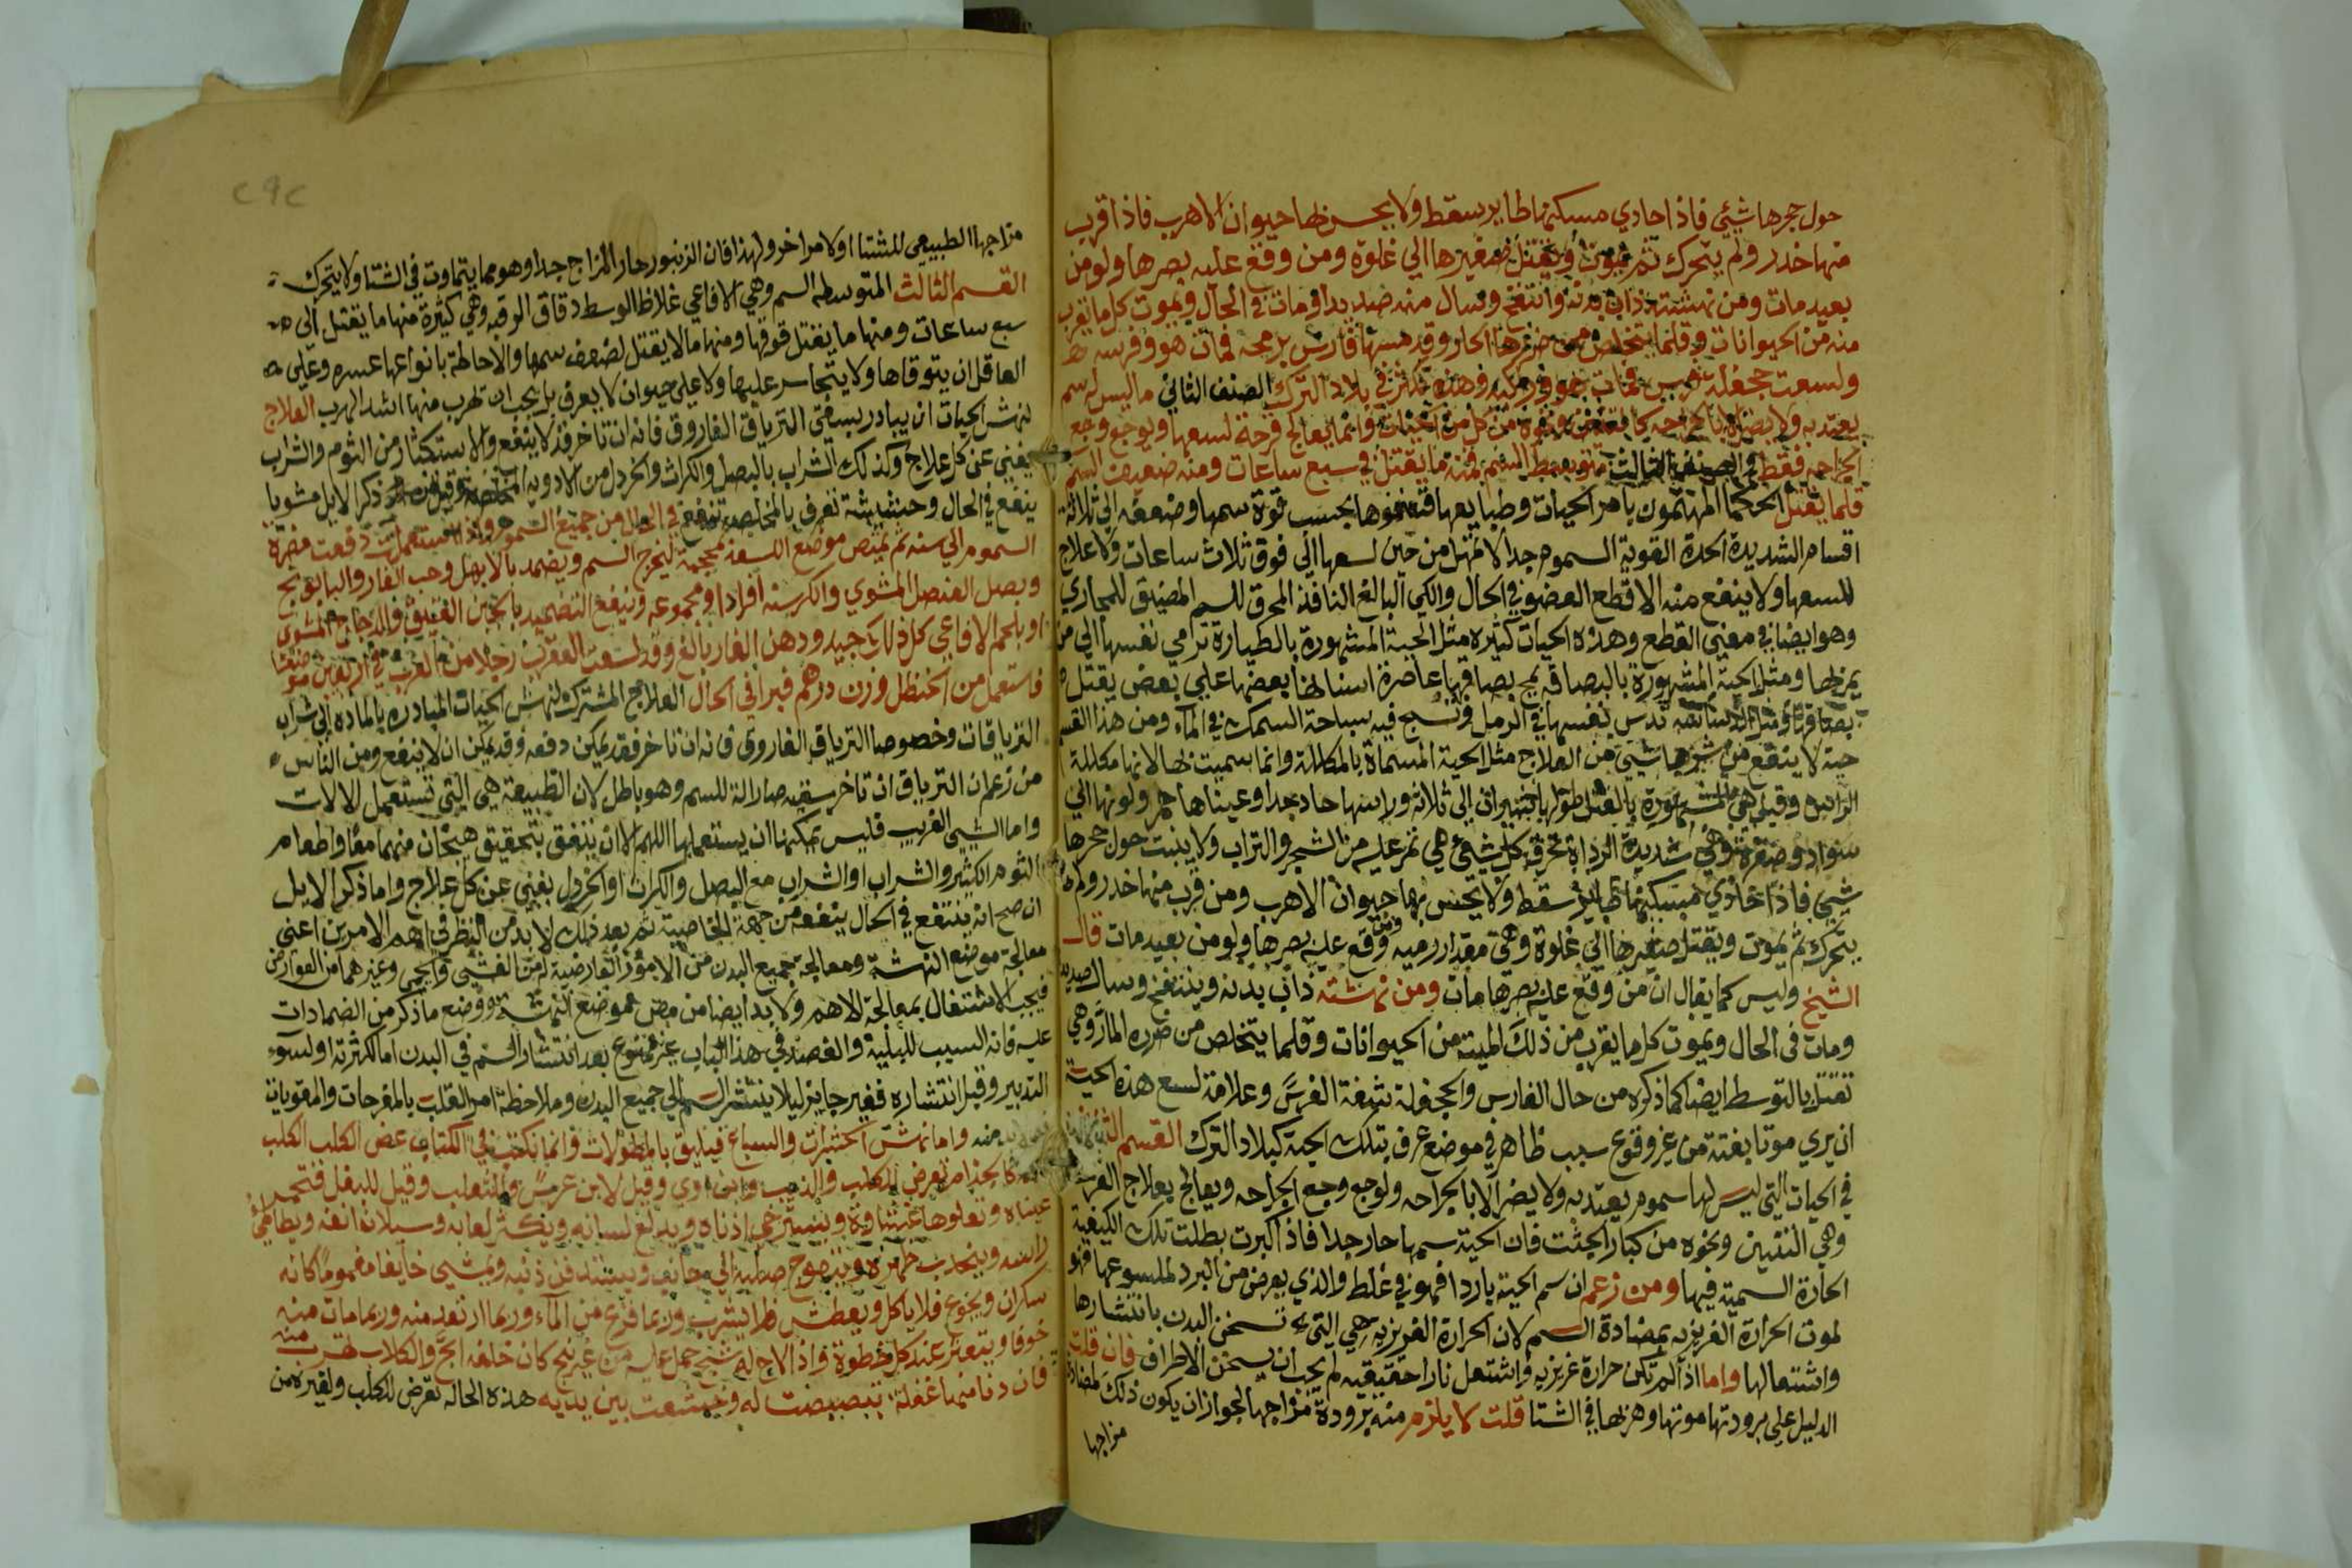 حول حجرها شيئ فاذا حادي مسكنها طاير سقط ولا يحس بها حيوان الا هرب فاذا قرب
منها خدر ولم يتحرك ثم يموت ويقتل صفيرها الي غلوة ومن وقع عليه بصرها ولو من
بعيد مات ومن نهشته ذاب بدنه وانتفخ وسال منه صديدا ومات في الحال ويموت كل ما يقرب
منه من الحيوانات وقلما يتخلص من ضررها الحار وقد مسها فارس برمحه فمات هو وفرسه
ولسعت جحفلة فرس فمات هو وراكبه وهذه تكثر في بلاد الترك الصنف الثاني ما ليس له سم
يعتد به ولا يضر الا بالجراحه وانما يعالج قرحة لسعها ويوجع وجع
الجراحه فقط الصنف الثالث متوسط السم فمنه ما يقتل في سبع ساعات ومنه ضعيف السم
قلما يقتل الحكما المهتمون بامر الحيات وطبايعها قسموها بحسب قوة سمها وضعفه الي ثلاثة
اقسام الشديدة الحدة القوية السموم جدا لا تمهل من حين لسعها الي فوق ثلاث ساعات ولا علاج
للسعها ولا ينفع منه الا قطع العضو في الحال والكي البالغ النافذ المحرق للسم المضيق للمجاري
وهو ايضا في معني القطع وهذه الحيات كثيره مثل الحية المشهورة بالطيارة ترمي نفسها الي من
يمر بها ومثل الحية المشهورة بالبصاقة يمج بصاقها عاصرة اسنانها بعضها علي بعض يقتل
بصاقها تدس نفسها في الرمل وتسبح فيه سباحة السمك في الماء ومن هذا القسم
حية لا ينفع من شرها شيئ من العلاج مثل الحية المسماة بالمكللة وانما سميت بها لانها مكللة
الراس وقيل هي المشهورة طولها شبران الي ثلاثة وراسها حاد جدا وعيناها حمر ولونها الي
سواد وصفرة وهي شديدة الرداة تحرق كل شيئ هي تمر عليه من الشجر والتراب ولا ينبت حول حجرها
شيئ فاذا حاذي مسكنها طاير سقط ولا يحس بها حيوان الا هرب ومن قرب منها خدر ولم
يتحرك ثم يموت ويقتل صفيرها الي غلوة وهي مقدار رميه ومن وقع عليه بصرها ولو من بعيد مات قال
الشيخ وليس كما يقال ان من وقع عليه بصرها مات ومن نهشته ذاب بدنه وينتفخ وسال صديد
ومات في الحال ويموت كل ما يقرب من ذلك الميته من الحيوانات وقلما يتخلص من ضرره المار وهي
تقتل بالتوسط ايضا كما ذكره من حال الفارس والجحفلة شفة الفرس وعلامة لسع هذه الحية
ان يري موتا بغتة من غير وقوع سبب ظاهر في موضع عرف بتلك الحية كبلاد الترك القسم الثاني
في الحيات التي ليس لها سموم يعتد به ولا يضر الا بالجراحه ولوجع وجع الجراحه ويعالج بعلاج القرحة
وهي التنين ونحوه من كبار الجثت فان الحية سمها حار جدا فاذا كبرت بطلت تلك الكيفية
الحارة السمية فيها ومن زعم ان سم الحية باردا فهو في غلط والذي يعرض من البرد لملسوعها فهو
لموت الحرارة الغريزيه بمضادة السم لان الحرارة الغريزيه هي التي تسخن البدن بانتشارها
واشتعالها واما اذا لم تكن حرارة غريزيه واشتعل نارا حقيقيه لم يجب ان يسخن الاطراف فان قلت
الدليل علي برودتها موتها وهربها في الشتا قلت لا يلزم منه برودة مزاجها لجواز ان يكون ذلك لمضادة
مزاجها
مزاجها الطبيعي للشتا او لامر اخر ولهذا فان الزنبور حار المزاج جدا وهو مما يتماوت في الشتا ولا يتحرك
القسم الثالث المتوسطه السم وهي الافاعي غلاظ الوسط دقاق الرقبه وهي كثيرة منها ما يقتل الي
سبع ساعات ومنها ما يقتل فوقها ومنها ما لا يقتل لضعف سمها والاحاطة بانواعها عسره وعلي
العاقل ان يتوقاها ولا يتجاسر عليها ولا علي حيوان لا يعرف بل يجب ان تهرب منها اشد الهرب العلاج
لنهش الحيات ان يبادر بسقي الترياق الفاروق فانه ان تاخر فقد لا ينفع والاستكثار من الثوم والشراب
يغني عن كل علاج وكذلك الشراب بالبصل والكراث والخردل من الادويه ذكر الايل مشويا
ينفع في الحال وحشيشة تعرف بالمخلصه تنفع في الحال من جميع السموم دفعت مضرة
السموم الي سنه ثم يمتص موضع اللسعة بمحجمة ليخرج السم ويضمد بالابهل وحب الغار والبابونج
وبصل العنصل المشوي والكرسنه افرادا ومجموعه وينفع التضميد بالجبن العتيق والدجاج المشوي
او بلحم الافاعي كل ذلك جيد ودهن الغار بالغ وقد لسعت العقرب رجلا من العرب في اربعين موضعا
فاستعمل من الحنظل وزن درهم فبرا في الحال العلاج المشترك لنهش الحيات المبادره بالماده الي شراب
الترياقات وخصوصا الترياق الفاروق فانه ان تاخر فقد يمكن دفعه وقد يمكن ان لا ينفع ومن الناس
من زعم ان الترياق ان تاخر سقيه صار الة للسم وهو باطل لان الطبيعة هي التي تستعمل الالات
واما الشيئ الغريب فليس يمكنها ان يستعملها اللهم الا ان يتفق بتحقيق هيجان منهما معا واطعام
الثوم الكثير والشراب او الشراب مع البصل والكراث او الخردل يغني عن كل علاج واما ذكر الايل
ان صح انه ينتفع في الحال ينفعه من جهة الخاصية ثم بعد ذلك لا بد من النظر في اهم الامرين اعني
معالجة موضع النهشة ومعالجة جميع البدن من الامور العارضية من الغشي والحمي وغيرهما من العوارض
فيجب الاشتغال بمعالجة الاهم ولا بد ايضا من مص موضع النهشة ووضع ما ذكر من الضمادات
عليه فانه السبب للبلية والفصد في هذا الباب غير ممنوع بعد انتشار السم في البدن اما لكثرته او لسوء
التدبير وقبل انتشاره فغير جايز ليلا ينتشر السم الي جميع البدن وملاحظة امر القلب بالمفرحات والمقويات
منه واما نهش الحشرات والسباع فيليق بالمطولات وانما يكتب في الكتاب عض الكلب الكلب
كالجذام تعرض للكلب والذيب وابن اوي وقيل لابن عرس والثعلب وقيل للبغل فتحمر
عيناه وتعلوها غشاوة ويسترخي اذناه ويدلع لسانه ويكثر لعابه وسيلان انفه ويطاطئ
راسه ويتحدب ظهره ويتعوج صلبه الي جانب ويستدفن ذنبه ويمشي خايفا مغموما كانه
سكران ويجوع فلا ياكل ويعطش فلا يشرب وربما فزع من الماء وربما ارتعد منه وربما مات منه
خوفا ويتعثر عند كل خطوة واذا لاح له شبح حمل عليه من غير نبح كان خلفه ابح والكلاب تهرب منه
فان دنا منها غفلة تبصبصت له وخشعت بين يديه هذه الحاله تعرض للكلب ولغيره من